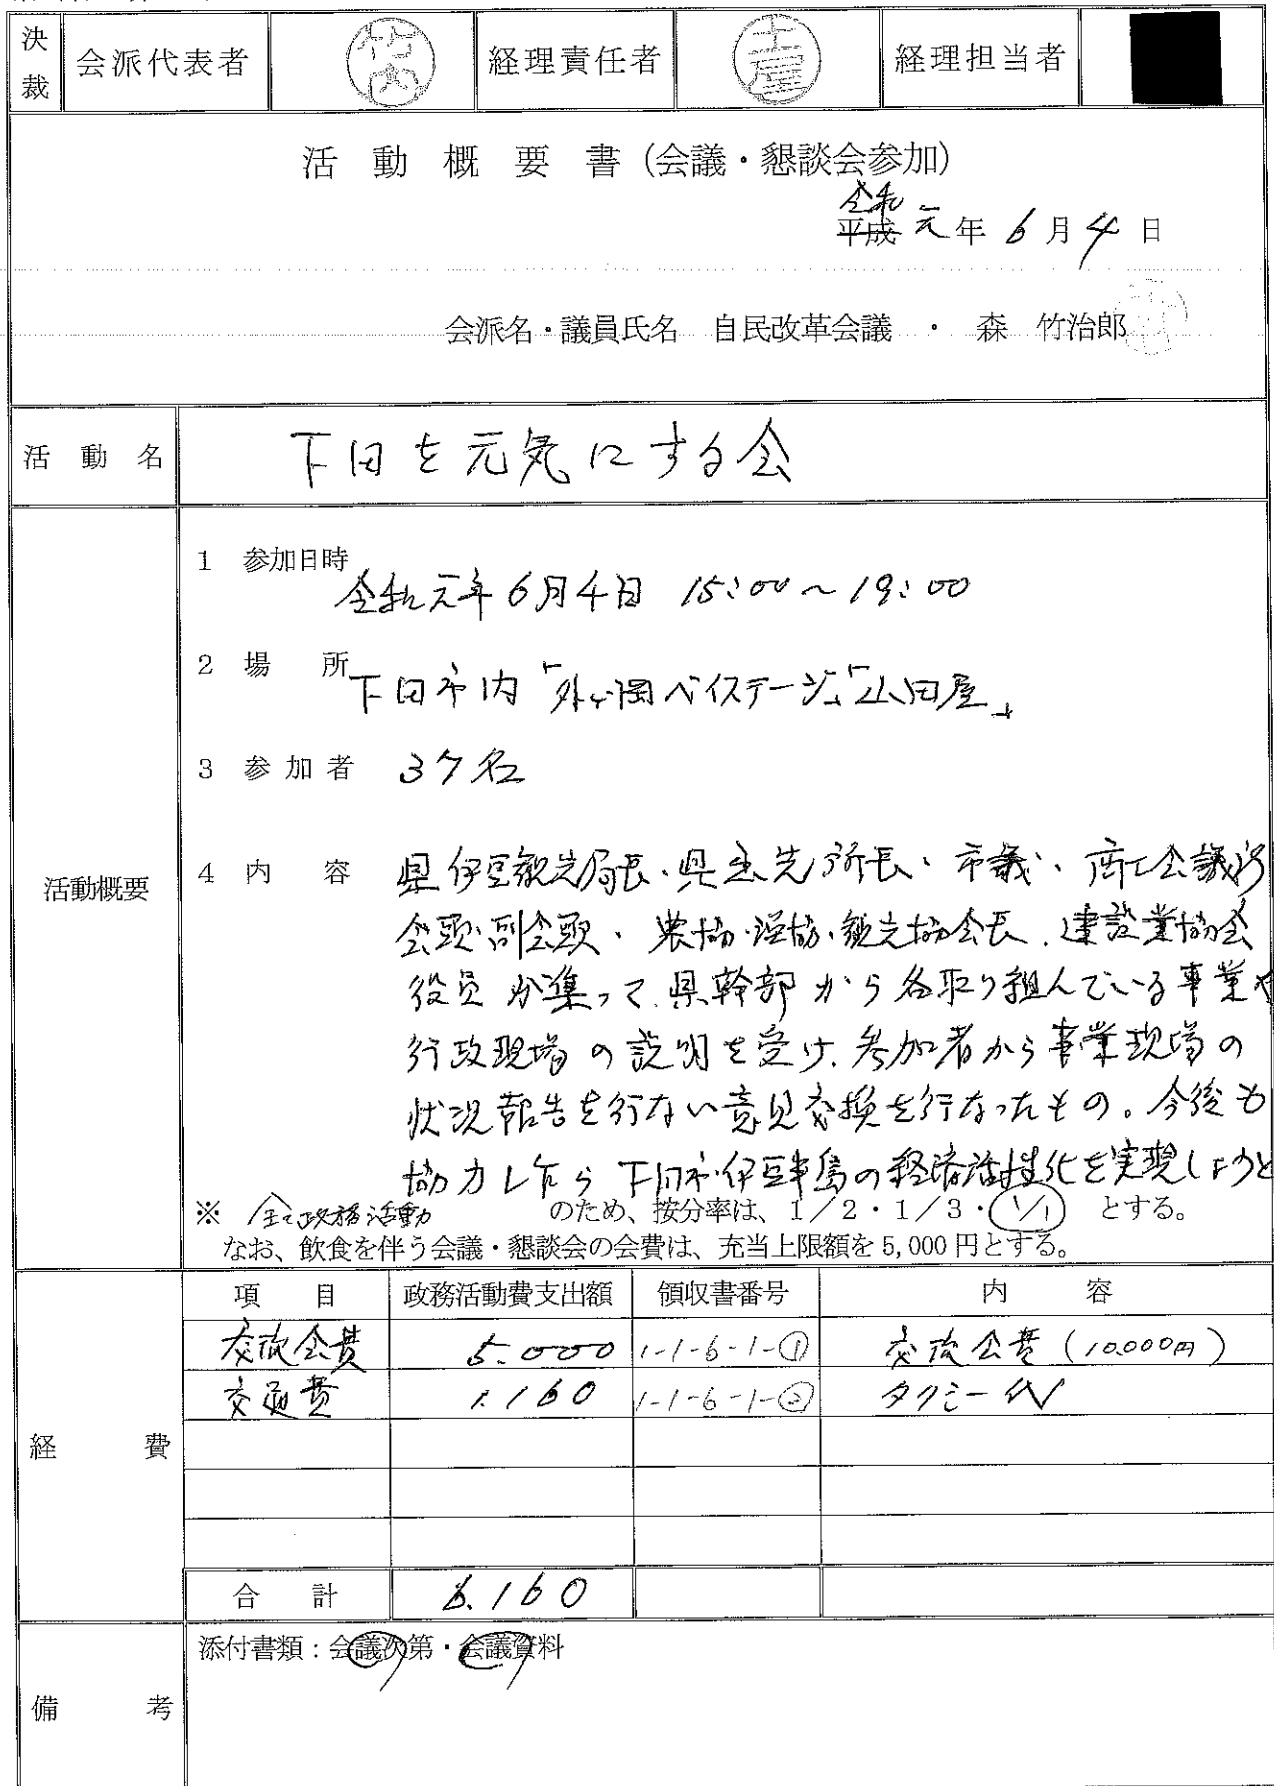 決裁 会派代表者 竹内 経理責任者 土屋 経理担当者
活動概要書(会議・懇談会参加)
令和
平成 元年6月4日
会派名・議員氏名 自民改革会議 ・ 森 竹治郎
活動名 下田を元気にする会
活動概要
1 参加日時
令和元年6月4日 15:00~19:00
2 場所
下田市内「外ヶ岡ベイステージ」「山田屋」
3 参加者 37名
4 内容 県伊豆観光局長・県出先所長・市議・商工会議所
会頭・副会頭・農協・漁協・観光協会長、建設業協会
役員が集って、県幹部から各取り組んでいる事業や
行政現場の説明を受け、参加者から事業現場の
状況報告を行ない意見交換を行なったもの。今後も
協力しながら下田市・伊豆半島の経済活性化を実現しようと
※ 全て政務活動 のため、按分率は、1/2・1/3・1/1 とする。
なお、飲食を伴う会議・懇談会の会費は、充当上限額を5,000円とする。
経費
項目 政務活動費支出額 領収書番号 内容
交流会費 5.000 1-1-6-1-① 交流会費(10.000円)
交通費 1.160 1-1-6-1-② タクシー代
合計 6.160
備考
添付書類:会議次第・会議資料